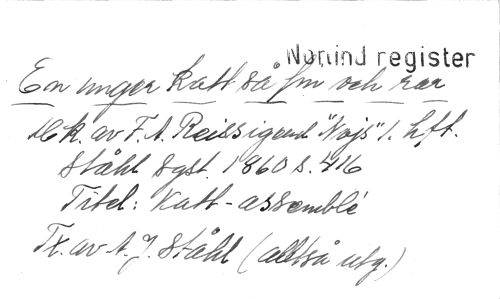 Norlind register
En unger katt så fin och rar
Mk. av F. A. Reissiger ur "Nojs" 1. hft.
Ståhl sgst. 1860 s. 416
Titel: Katt-assemblé
Tx. av A. J. Ståhl (alltså utg.)